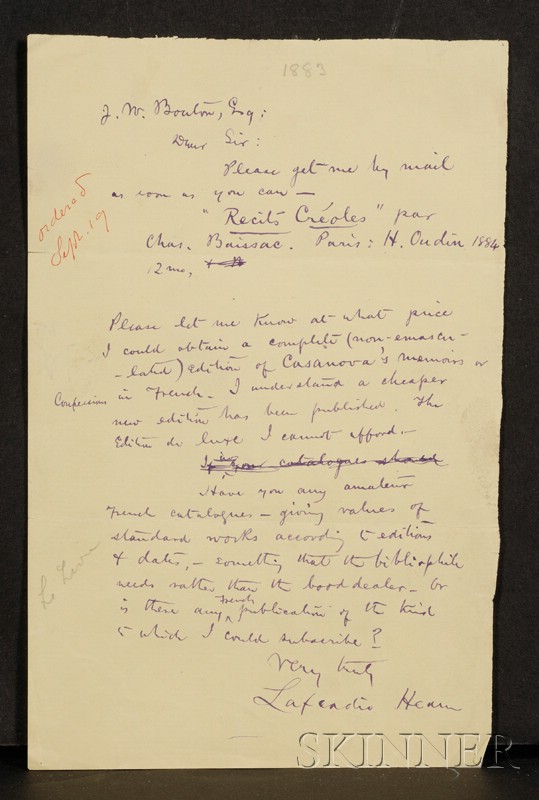 1883
J. W. Bouton, Esq:
Dear Sir:
Please get me by mail
as soon as you can —
"Recits Créoles" par
Chas. Baissac. Paris: H. Oudin 1884
12mo.
ordered
Sept. 19
Please let me know at what price
I could obtain a complete (non-emascu-
-lated) edition of Casanova's memoirs or
Confessions in French. I understand a cheaper
new edition has been published. The
Edition de luxe I cannot afford —
If your catalogues should
Have you any amateur
French catalogues — giving values of
standard works according to editions
& dates, — something that the bibliophile
needs rather than the bookdealer — Or
is there any French publication of the kind
to which I could subscribe?
Le Livre
Very truly
Lafcadio Hearn
SKINNER